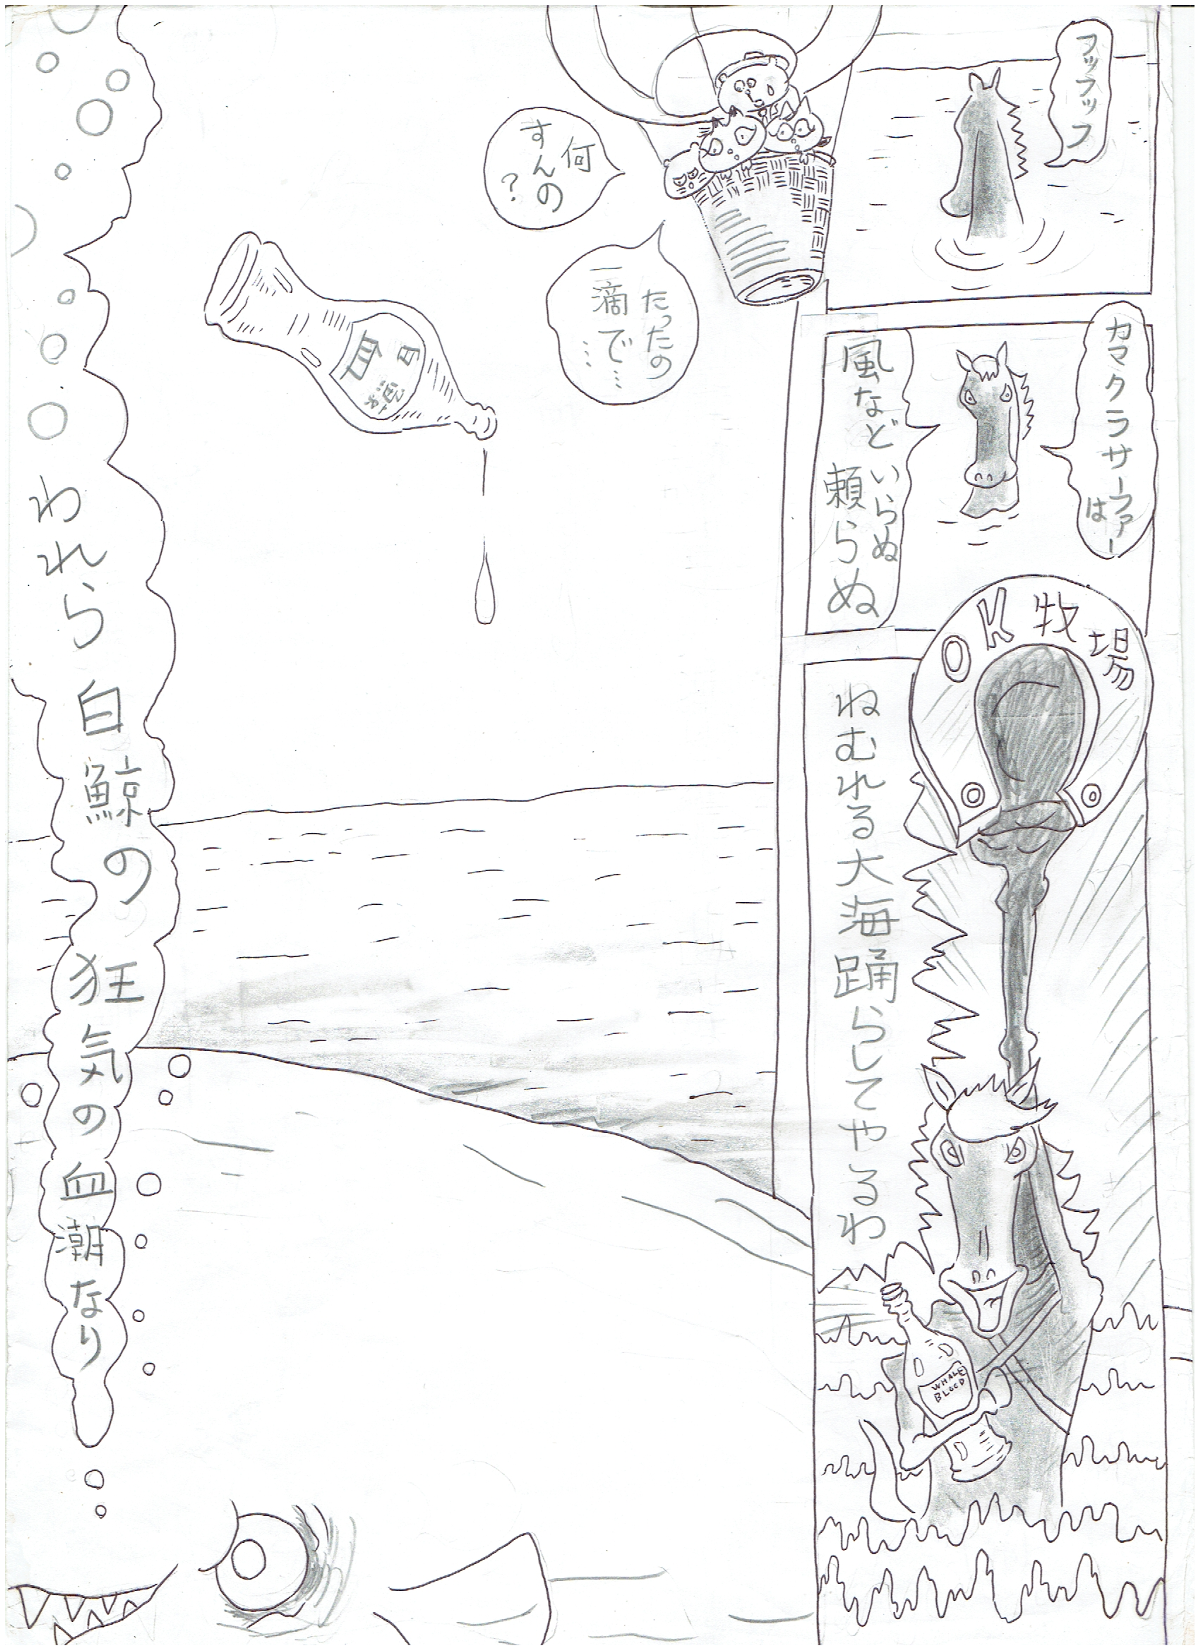 フッフッフ
カマクラサーファーは
風など
いらぬ
頼らぬ
OK牧場
ねむれる大海踊らしてやるわ
WHALE
BLOOD
何
すんの
?
たったの
一滴で……
白鯨
血
われら白鯨の狂気の血潮なり